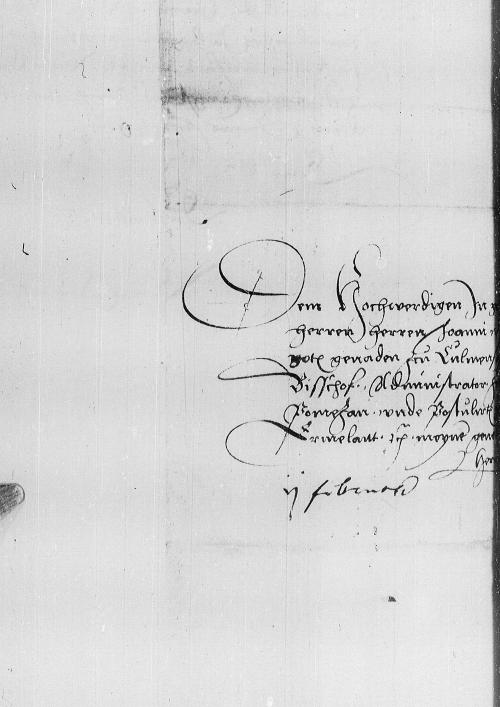 Dem Hochwerdigen In
herren herren Joanni
gots genaden zcu Culmen
Bisschof Administrator
Pomezan unde Postulirt
Ermelant meyne gene
her
ij februarii